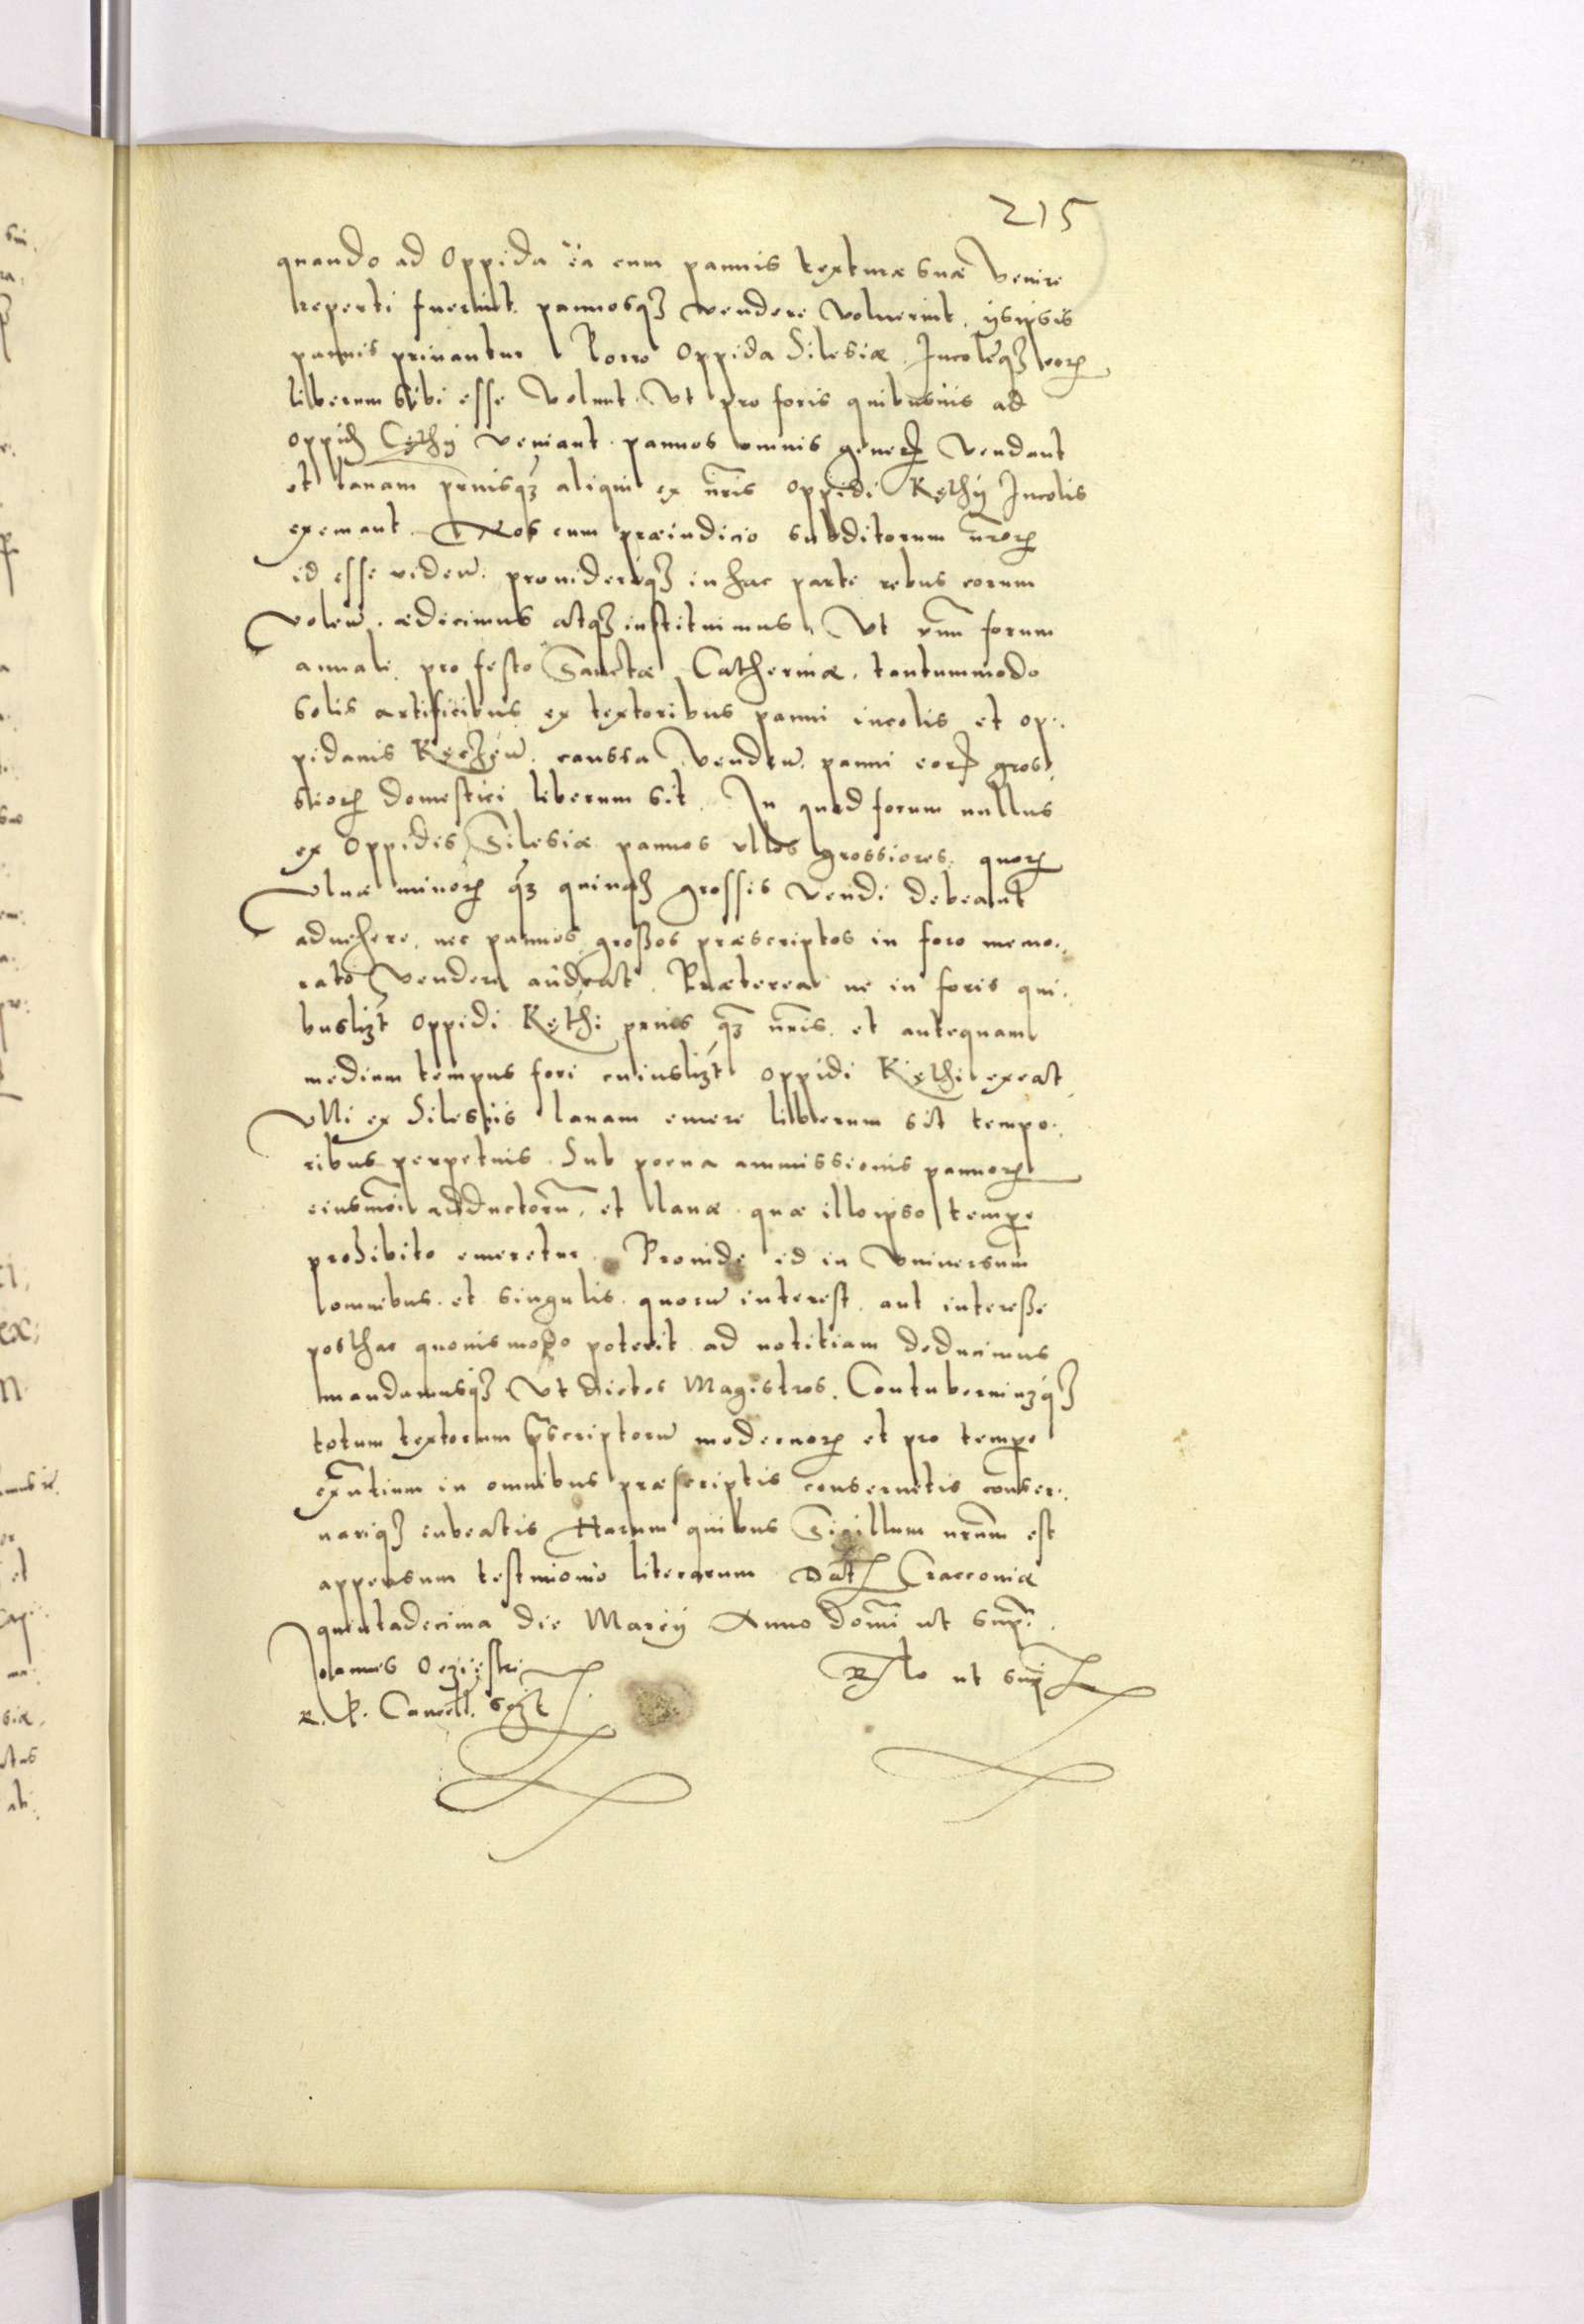 215
quando ad Oppida ea cum pannis texturæ suæ Venire
reperti fuerint pannosq3 vendere Voluerint, ijsipsis
pannis priuantur. Porro Oppida Silesiæ Incolęq3 eorꝝ
liberum sibi esse Volunt. Vt pro foris quibusuis ad
oppid. Cęthÿ veniant pannos omnis generꝭ Vendant
et lanam priusq3 aliqui ex nr̃is oppidi Kęthÿ Incolis
exemant. Nos cum præiudicio subditorum nr̃orꝝ
id esse viden. prouideriq3 in hac parte rebus eorum
volen. ædicimus atq3 instituimus, Vt vnũ forum
annale pro festo Sanctæ Catherinæ, tantummodo
solis artificibus ex textoribus panni incolis et op:
pidanis Kęczen. caussa venden. panni eorꝝ gros:
siorꝝ domestici liberum sit. In quod forum nullus
ex Oppidis Silesiæ pannos vllos grossiores, quorꝝ
vlnæ minorꝭ q3 quinqȝ grossis vendi debeant
aduehere, nec pannos großos præscriptos in foro memo:
rato vendere audeat. Præterea ne in foris qui:
busliȝt oppidi Kęthi prius q3 nr̃is. et antequam
medium tempus fori cuiusliȝt oppidi Kęthi exeat
Vlli ex Silesijs lanam emere liberum sit tempo:
ribus perpetuis. Sub poena ammissionis pannorꝝ
eiusmõi adductorũ, et lanæ quæ illo ipso tempe
prohibito emeretur. Prouide id in vniuersum
omnibus et singulis quorũ interest, aut interesse
posthac quouismodo poterit ad notitiam deducimus
mandamusq3 Vt dictos Magistros, Contuberniuȝq3
totum textorum p̃scriptorũ modernorꝝ et pro tempe
exñtium in omnibus præscriptis conseruetis conser:
uariq3 iubeatis Harum quibus Sigillum nrũm est
appensum testimonio literarum Dat. Cracouiæ
quintadecima die Marcÿ Anno Domĩ ut sup.
Joannes Ocziesski
R. P. Cancell. sszt
Rlo ut sup.